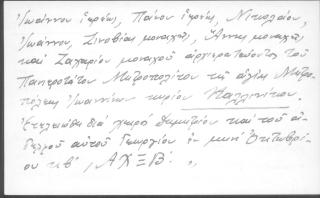 Ἰωάννου ἱερέως, Πάνου ἱερέως, Νικολάου,
Ἰωάννου, Ζινοβίας μοναχῆς, Ἄννης μοναχῆς,
καὶ Ζαχαρίου μοναχοῦ ἀρχιερατεύοντος τοῦ
Πανιερωτάτου Μητροπολίτου τῆς ἁγίας Μητρο-
πόλεως Ἰωαννίνων κυρίου Καλλινίκου.
Ἐτελειώθη διὰ χειρὸς Δημητρίου καὶ τοῦ ἀ-
δελφοῦ αὐτοῦ Γεωργίου ἐν μηνὶ Ὀκτωβρί-
ου κβ΄, ΑΧΞΒ΄.